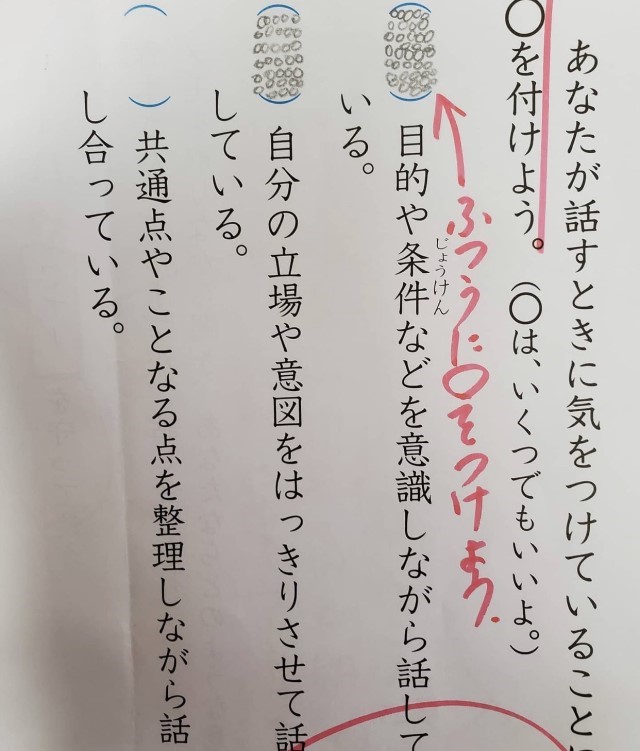 あなたが話すときに気をつけていることに
〇を付けよう。(〇は、いくつでもいいよ。)
ふつうに〇をつけよう.
( ) 目的や条件などを意識しながら話して
じょうけん
いる。
( ) 自分の立場や意図をはっきりさせて話
している。
( ) 共通点やことなる点を整理しながら話
し合っている。